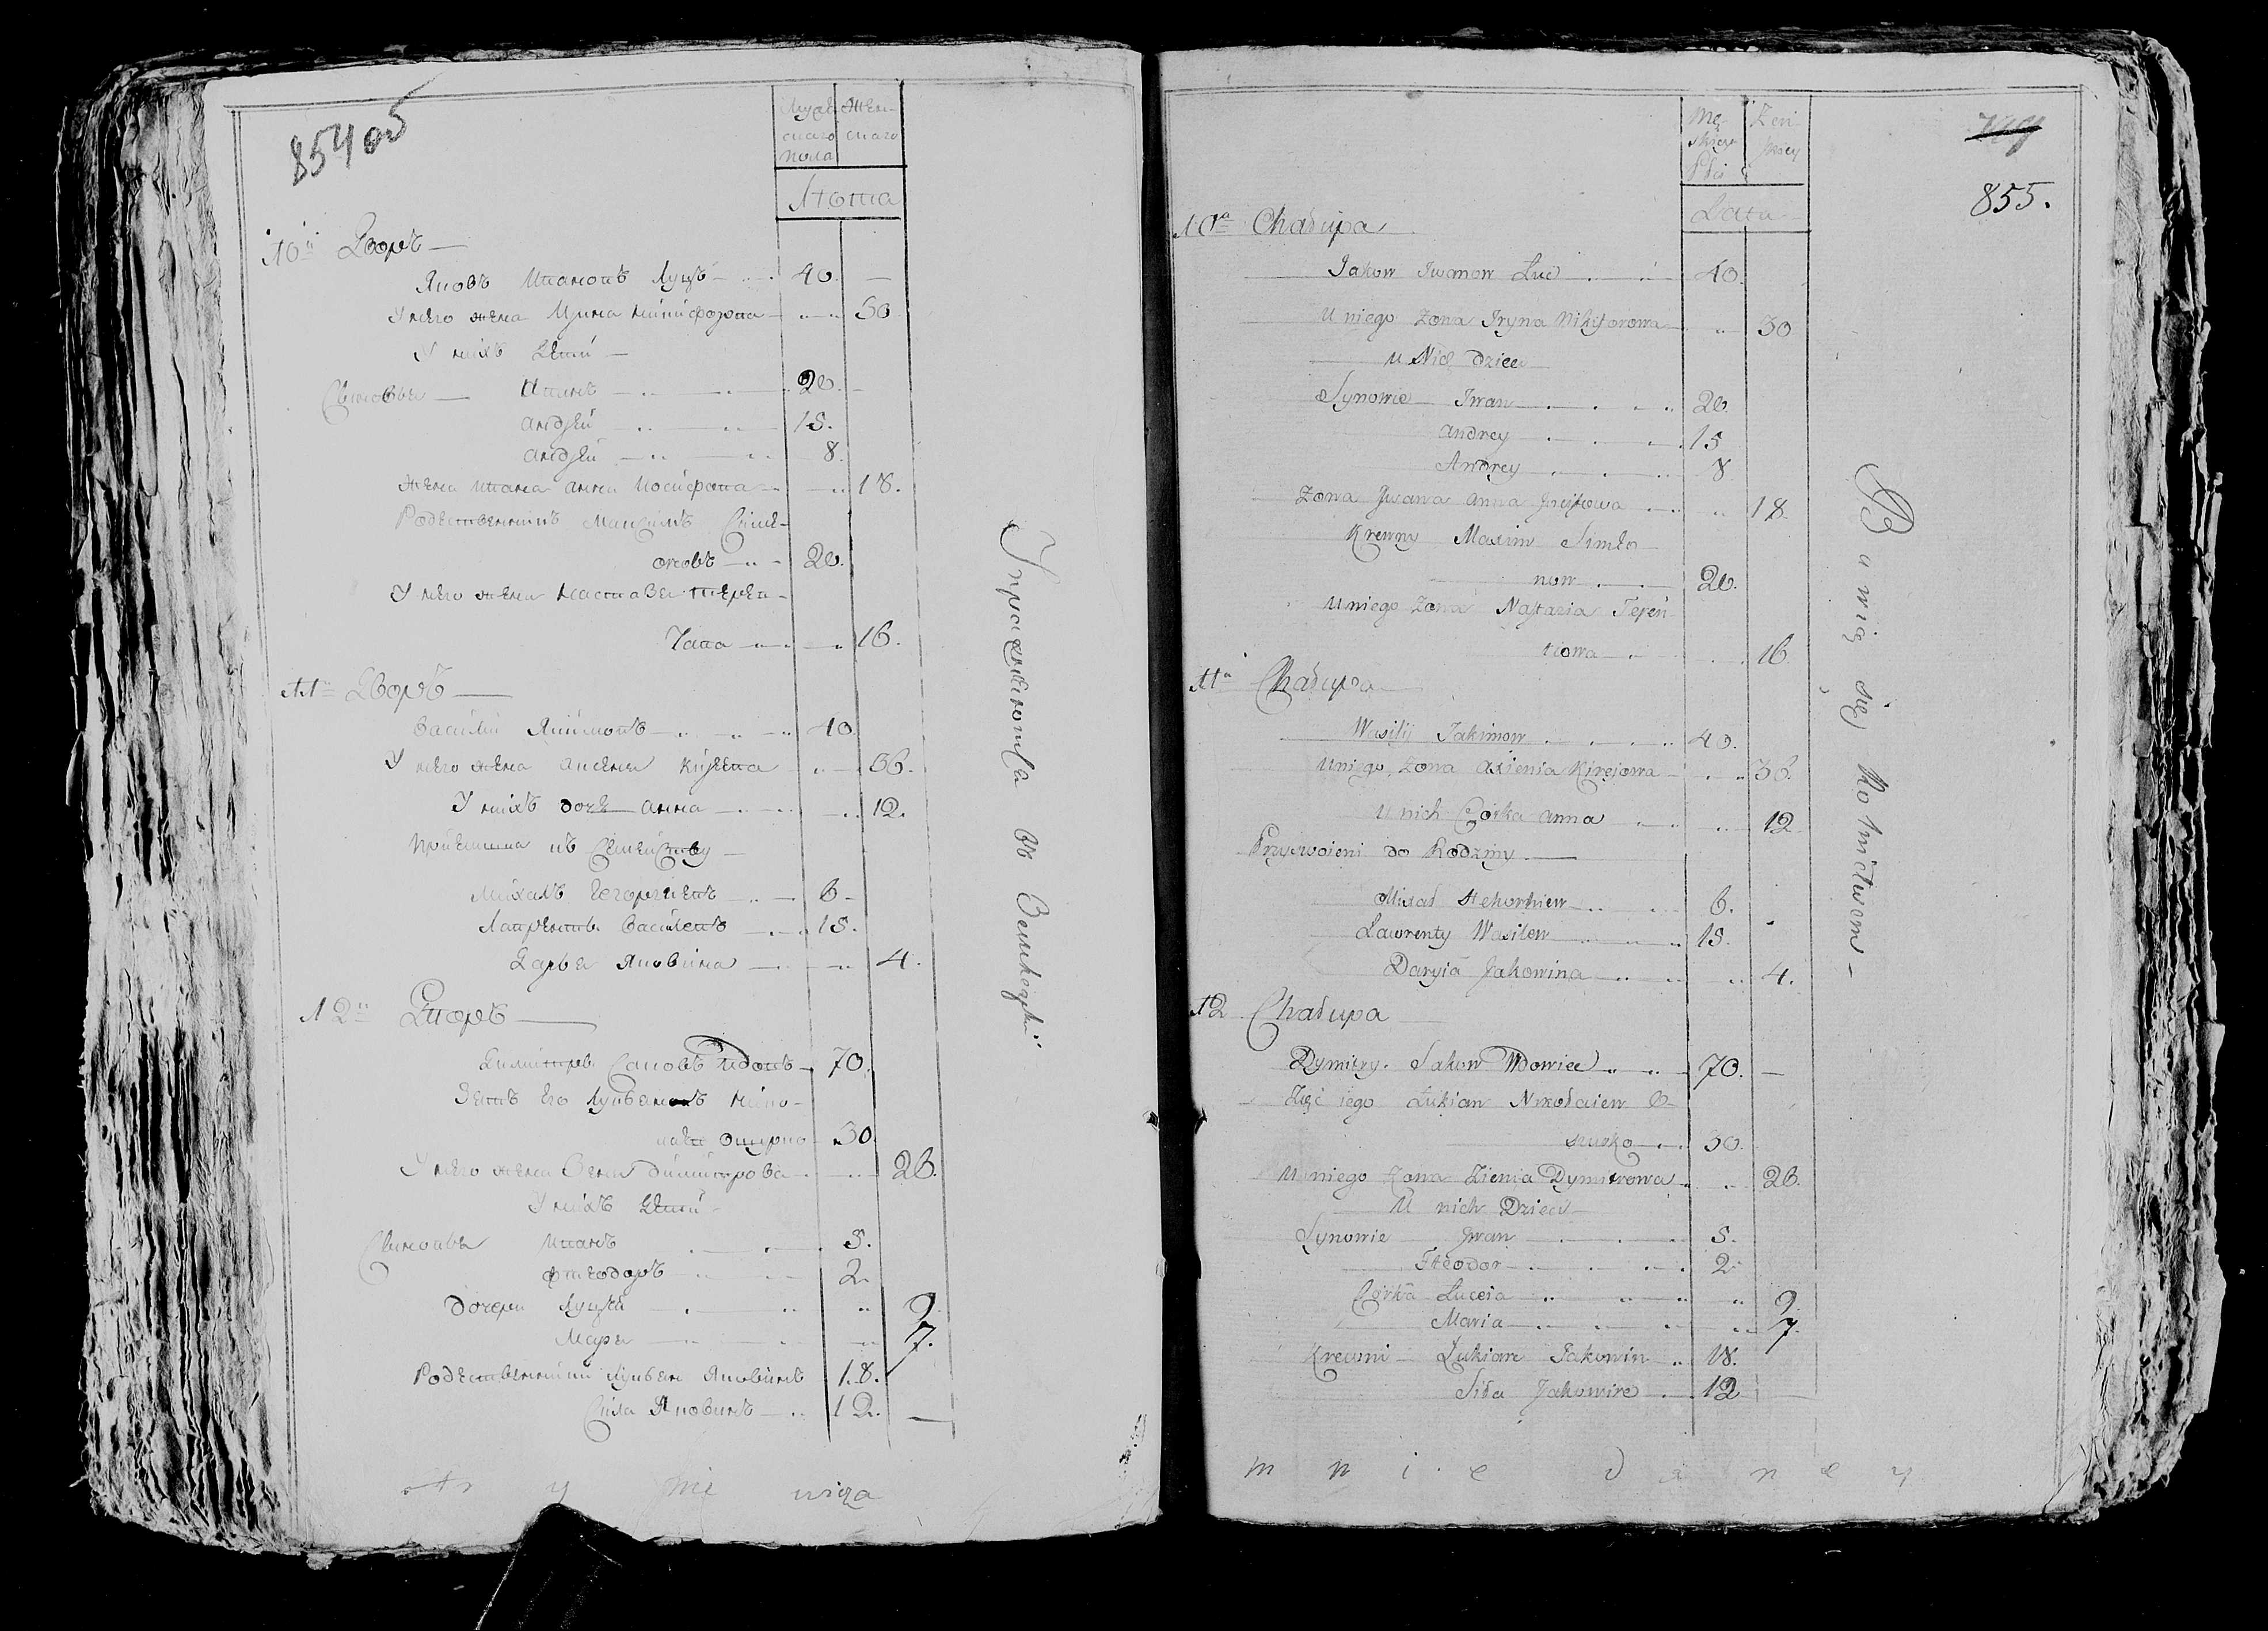 854 об
Мужескаго пола
Женскаго
Лѣта
10й Дворъ
Яковъ Ивановъ Луцъ 40.
У него жена Ирина Никифорова 30
У нихъ дѣти
Сыновья Иванъ 20.
Андрей 15.
Андрей 8.
Жена Ивана Анна Иосифова 18.
Родственникъ Максимъ Симо-
новъ 20.
У него жена Настазья Терен-
тіева 16.
11й Дворъ
Василій Якимовъ 40
У него жена Аксенья Кирѣева 36.
У нихъ дочь Анна 12.
Пріемыши къ Семейству
Михалъ Егоргіевъ 6
Лаврентъ Василевъ 15.
Дарья Яковина 4.
12й Дворъ
Димитръ Саковъ вдовъ 70.
Зять его Лукьянъ Нико-
лаевъ 30.
У него жена Зеня Димитрова 26.
У нихъ дѣти
Сыновья Иванъ 5.
Ѳеодоръ 2.
Дочери Луцея 9.
Марья 7.
Родственники Лукьянъ Яковинъ 18.
Сила Яковинъ 12.
Упражняются въ Земледѣліи
wiza
855.
Męskiey Płci
Żeńskiey
Lata
10a Chałupa
Jakow Jwanow Luc 40.
U niego Żona Jryna Nikiforowa 30
U Nich dzieci
Synowie Jwan 20.
Andrey 15
Andrey 8
Żona Jwana Anna Jozefowa 18.
Krewny Maxim Simo-
now 20.
U niego Żona Nastazia Teren-
tiowa 16.
11a Chałupa
Wasiliy Jakimow 40.
U niego Żona Axienia Kirejowa 36.
U nich Córka Anna 12
Przyswoieni do Rodziny
Michał Hehorhiew 6.
Lawrenty Wasilew 15.
Daryia Jakowina 4.
12 Chałupa
Dymitry Sakow Wdowiec 70.
Zięć iego Łukian Nikołaiew
30.
U niego Żona Zienia Dymitrowa 26.
U nich Dzieci
Synowie Jwan 5.
Fteodor 2.
Córka Łuceia 9.
Maria 7.
Krewni Łukian Jakowin 18.
Siła Jakowin 12
Bawią się Rolnictwem
mnie daney